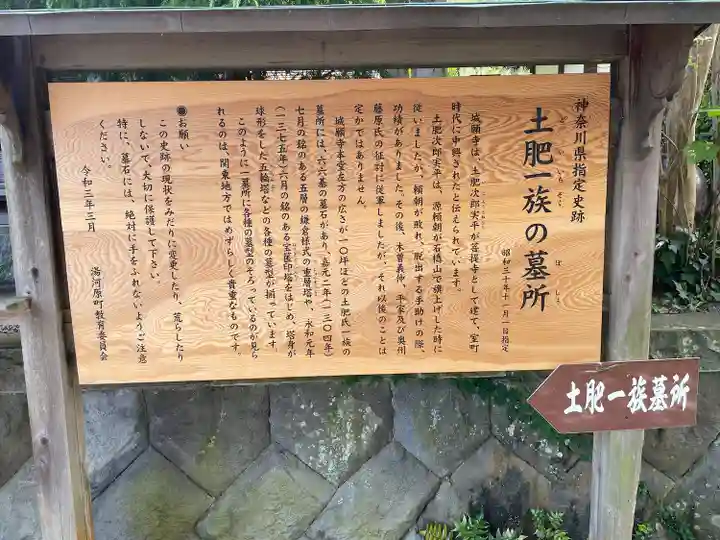 神奈川県指定史跡
土肥一族の墓所
どいいちぞく ぼしょ
昭和三十年十一月一日指定
城願寺は、土肥次郎実平が菩提寺として建て、室町
時代に中興されたと伝えられています。
土肥次郎実平は、源頼朝が石橋山で旗上げした時に
従いましたが、頼朝が敗れ、脱出する手助けの際、
功績がありました。その後、木曽義仲、平家及び奥州
藤原氏の征討に従軍しましたが、それ以後のことは
定かではありません。
城願寺本堂左方の広さが一〇坪ほどの土肥氏一族の
墓所には、六六基の墓石があり、嘉元二年（一三〇四年）
七月の銘のある五層の鎌倉様式の重層塔や、永和元年
（一三七五年）六月の銘のある宝篋印塔をはじめ、塔身が
球形をした五輪塔などの各種の墓型が揃っています。
このように一墓所に各種の墓型のそろっているのが見ら
れるのは、関東地方ではめずらしく貴重なものです。
◉お願い
この史跡の現状をみだりに変更したり、荒らしたり
しないで、大切に保護して下さい。
特に、墓石には、絶対に手をふれないようご注意
ください。
令和三年三月
湯河原町教育委員会
土肥一族墓所